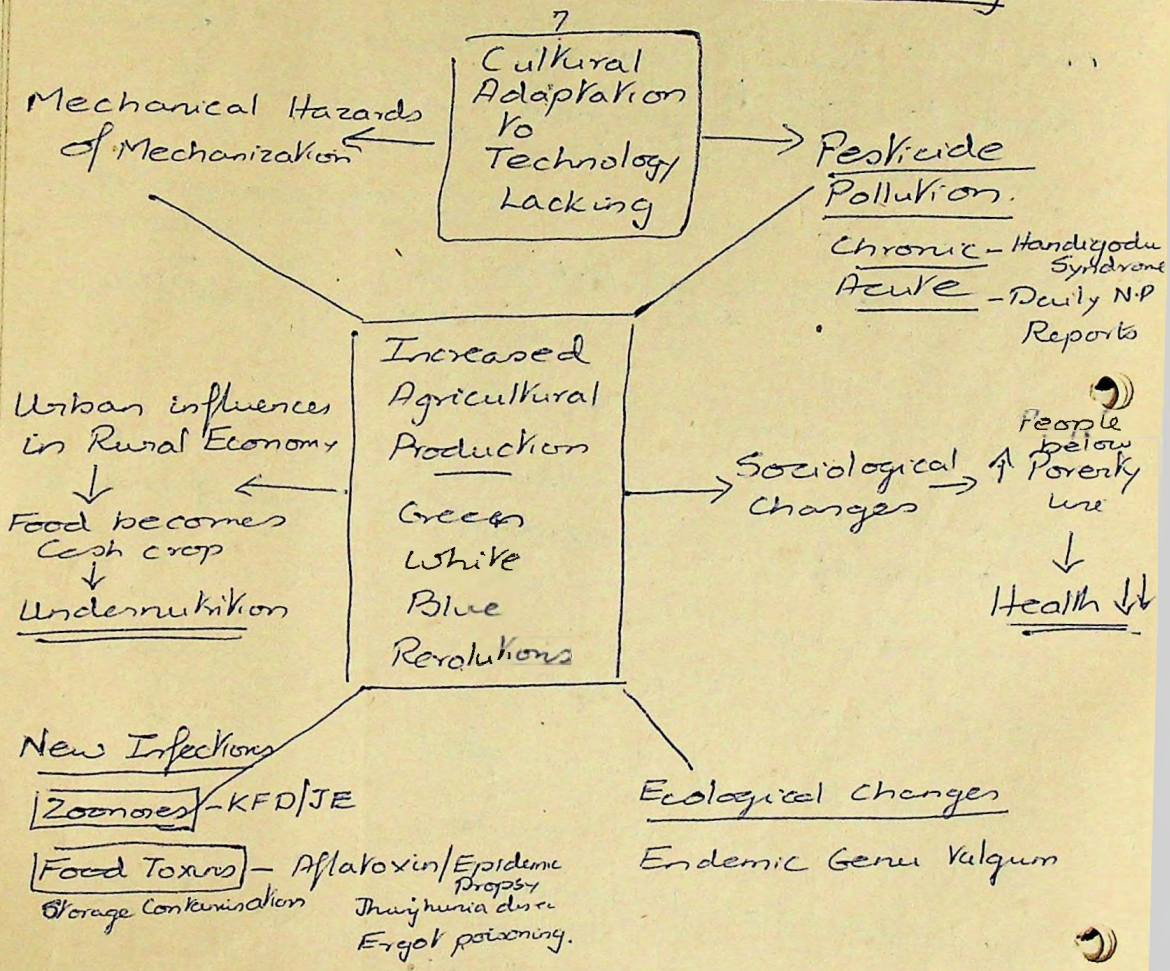 7
Cultural
Adaptation
to
Technology
Lacking
Mechanical Hazards
of Mechanization
Pesticide
Pollution.
Chronic - Handigodu
Syndrome
Acute - Daily N.P
Reports
Increased
Agricultural
Production
Green
White
Blue
Revolutions
Urban influences
in Rural Economy
↓
Food becomes
Cash crop
↓
Undernutrition
Sociological
Changes
→ ↑ People
below
Poverty
line
↓
Health ↓↓
New Infections
Zoonoses - KFD/JE
Food Toxins - Aflatoxin/Epidemic
Dropsy
Storage Contamination
Ergot poisoning.
Ecological Changes
Endemic Genu Valgum